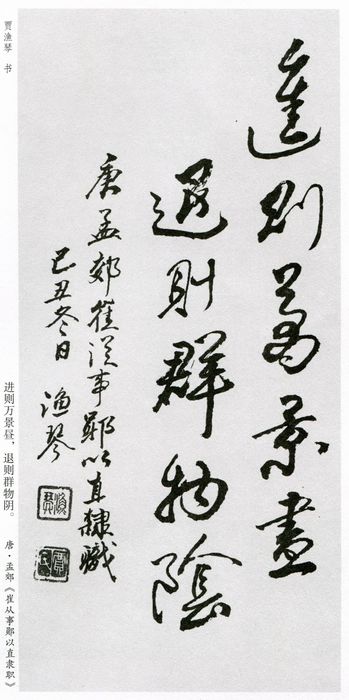 進則萬景晝
退則群物陰
唐孟郊崔從事鄖以直隸職
己丑冬日 漁琴
贾渔琴 书
进则万景昼，退则群物阴。 唐·孟郊《崔从事郧以直隶职》